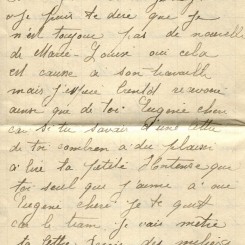 je puis te dire que je
n'est toujour pas de nouvelle
de Marie-Louise oui cela
est cause a son travaille
mais j'espère bientôt recevoir
ainsi que de toi Eugene cheri
car si tu savais d'une lettre
de toi combien a du plaisir
a lire ta petite Hortense que
toi seul que j'aime a vie
Eugene cheri je te quitt
car le temp je vais mettre
la lettre